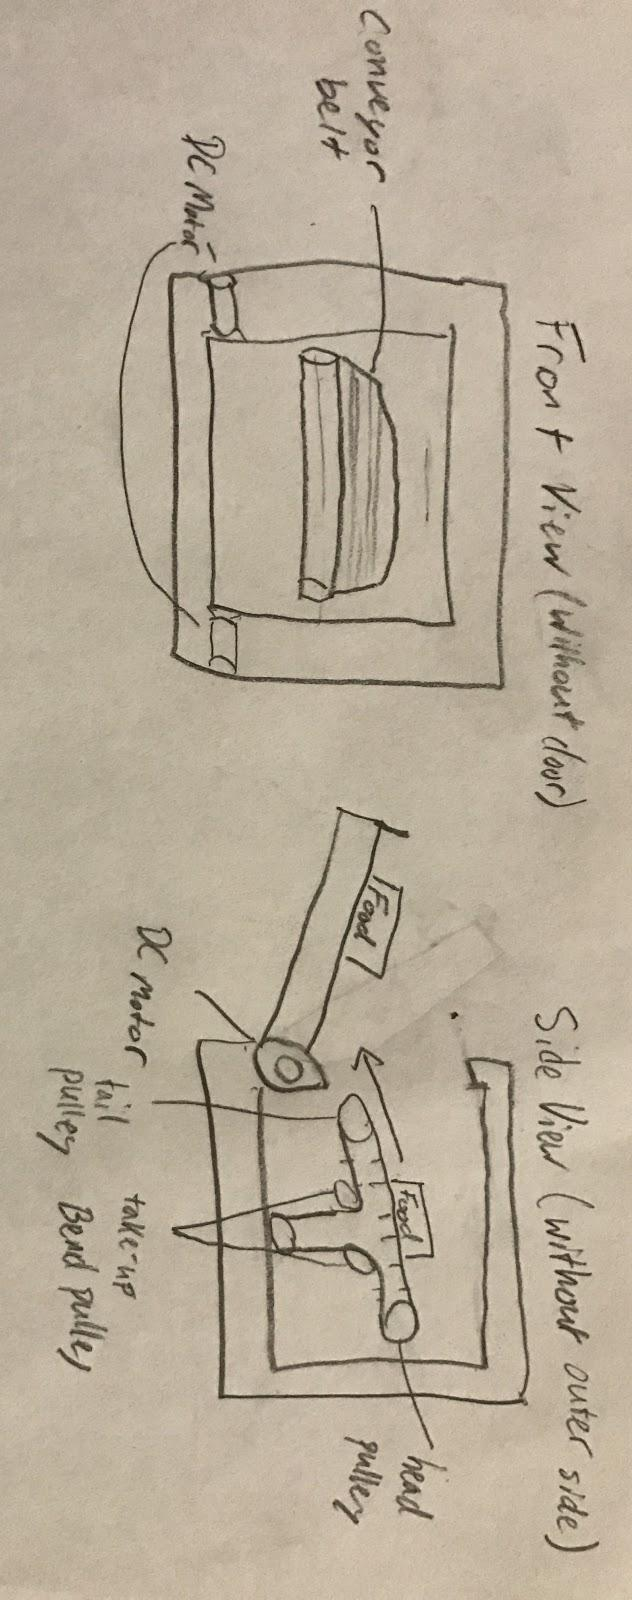 Front View (without door)
Conveyor
belt
DC Motor
Side View (without outer side)
Food
Food
DC Motor
tail
pulley
take-up
Bend pulley
head
pulley